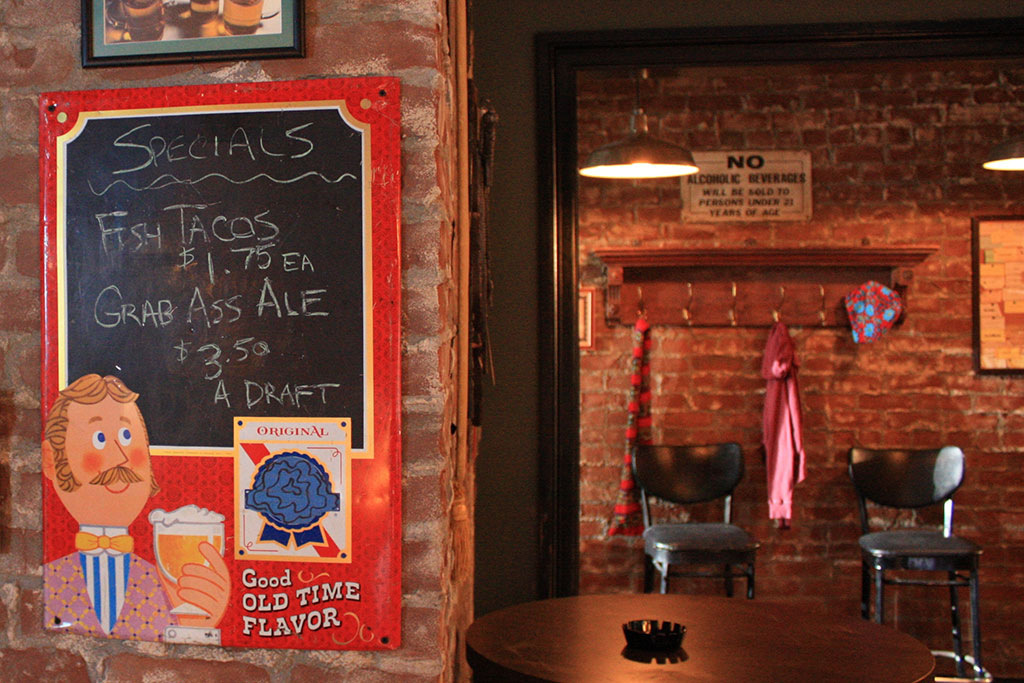 SPECIALS
FISH TACOS
$1.75 EA
GRAB ASS ALE
$3.50
A DRAFT
ORIGINAL
Good
OLD TIME
FLAVOR
NO
ALCOHOLIC BEVERAGES
WILL BE SOLD TO
PERSONS UNDER 21
YEARS OF AGE